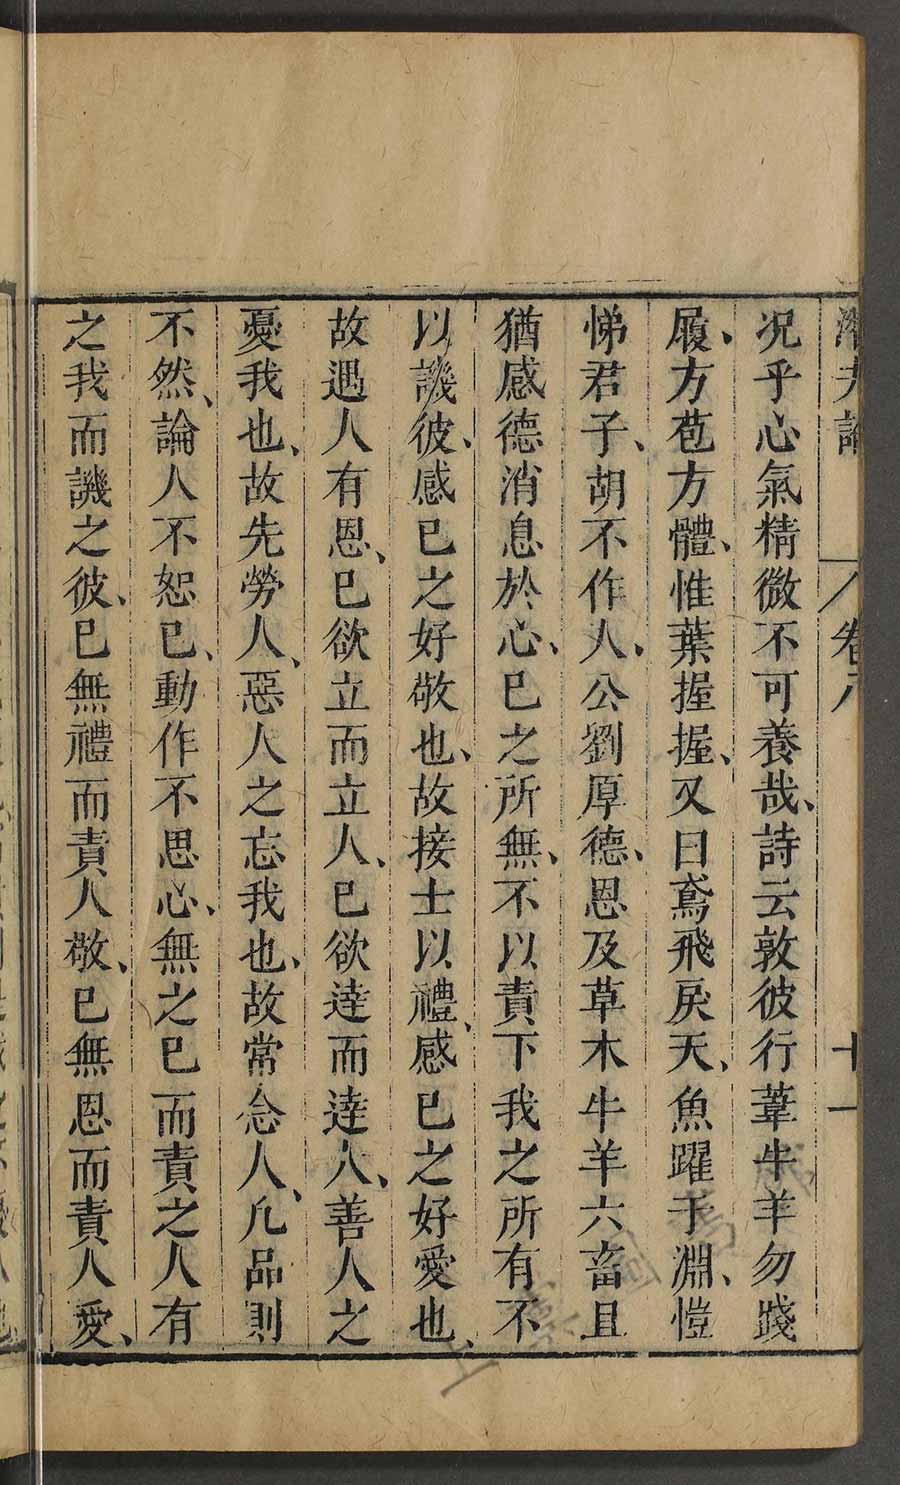 潛夫論 卷八 十一
况乎心氣精微不可養哉、詩云敦彼行葦牛羊勿踐
履、方苞方體、惟葉握握、又曰鳶飛戾天、魚躍于淵、愷
悌君子、胡不作人、公劉厚德、恩及草木牛羊六畜且
猶感德消息於心、已之所無、不以責下我之所有不
以譏彼、感已之好敬也、故接士以禮、感已之好愛也、
故遇人有恩、已欲立而立人、已欲逹而逹人、善人之
憂我也、故先勞人、惡人之忘我也、故常念人、凢品則
不然、論人不恕已、動作不思心、無之已而責之人有
之我而譏之彼、已無禮而責人敬、已無恩而責人愛、